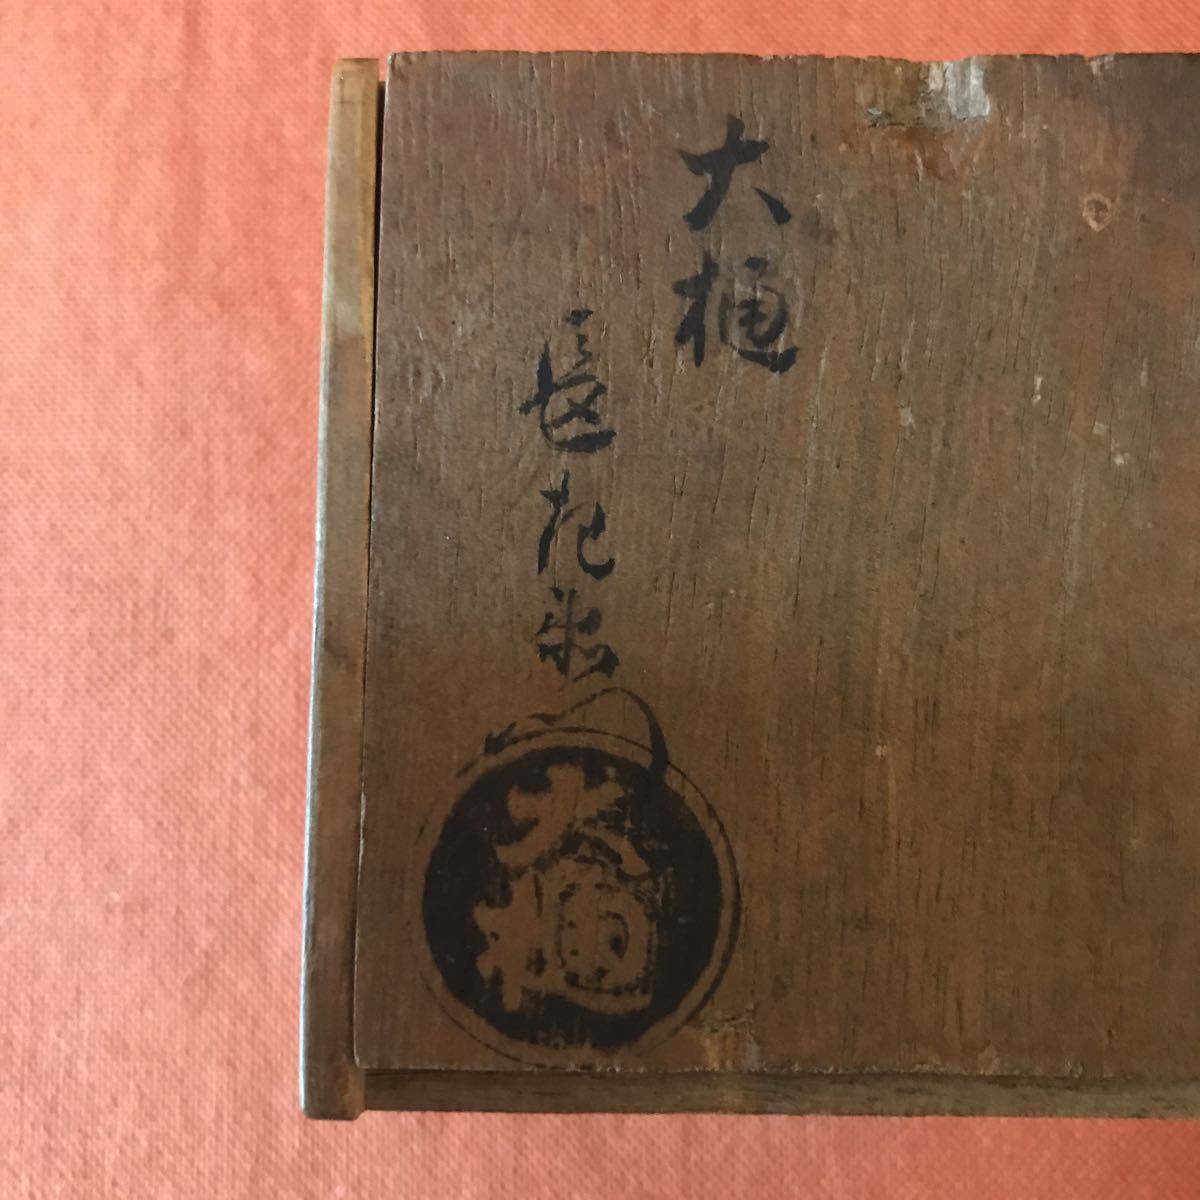 大樋
長左衛
大樋